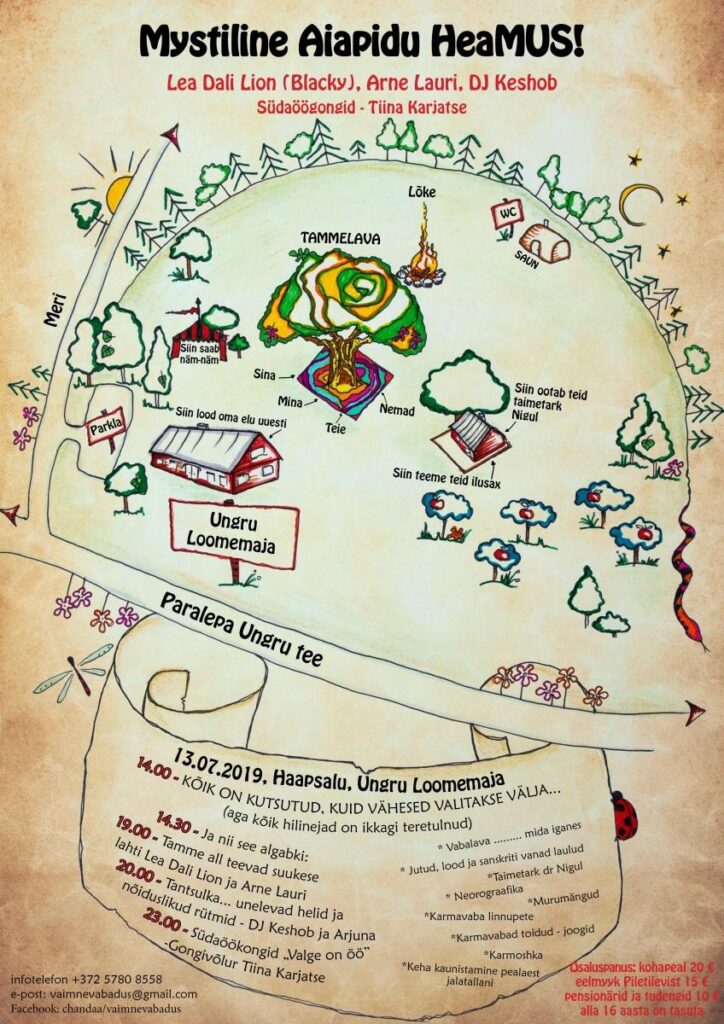 Mystiline Aiapidu HeaMUS!
Lea Dali Lion (Blacky), Arne Lauri, DJ Keshob
Südaöögongid - Tiina Karjatse
Lõke
WC
SAUN
TAMMELAVA
Meri
Siin saab
näm-näm
Sina
Mina
Teie
Nemad
Siin ootab teid
taimetark
Nigul
Siin teeme teid ilusax
Parkla
Siin lood oma elu uuesti
Ungru
Loomemaja
Paralepa Ungru tee
13.07.2019, Haapsalu, Ungru Loomemaja
14.00 - KÕIK ON KUTSUTUD, KUID VÄHESED VALITAKSE VÄLJA...
(aga kõik hilinejad on ikkagi teretulnud)
14.30 - Ja nii see algabki:
19.00 - Tamme all teevad suukese
lahti Lea Dali Lion ja Arne Lauri
20.00 - Tantsulka... unelevad helid ja
nõiduslikud rütmid - DJ Keshob ja Arjuna
23.00 - Südaöökongid „Valge on öö“
-Gongivõlur Tiina Karjatse
* Vabalava ......... mida iganes
* Jutud, lood ja sanskriti vanad laulud
*Taimetark dr Nigul
* Neorograafika
*Murumängud
*Karmavaba linnupete
*Karmavabad toidud - joogid
*Karmoshka
*Keha kaunistamine pealaest
jalatallani
infotelefon +372 5780 8558
e-post: vaimnevabadus@gmail.com
Facebook: chandaa/vaimnevabadus
Osaluspanus: kohapeal 20 €
eelmyyk Piletilevist 15 €
pensionärid ja tudengid 10 €
alla 16 aasta on tasuta